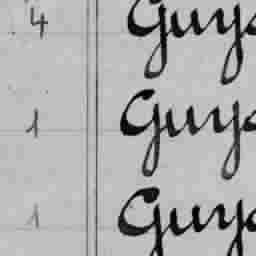 4 Guys
1 Guys
1 Guys